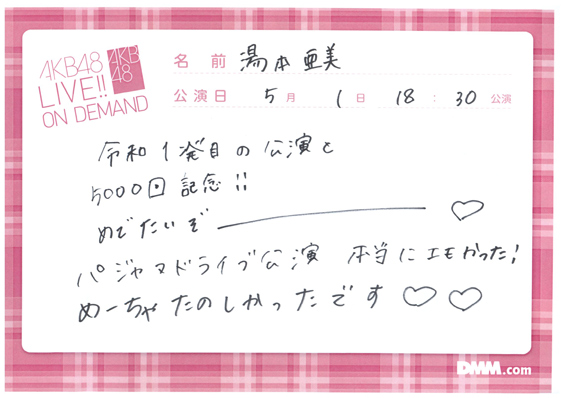 AKB48
LIVE!!
ON DEMAND
AKB
48
名 前 湯本亜美
公演日 5月 1日 18:30公演
令和1発目の公演と
5000回記念!!
めでたいぞー♡
パジャマドライブ公演 本当にエモかった!
めーちゃたのしかったです♡♡
DMM.com